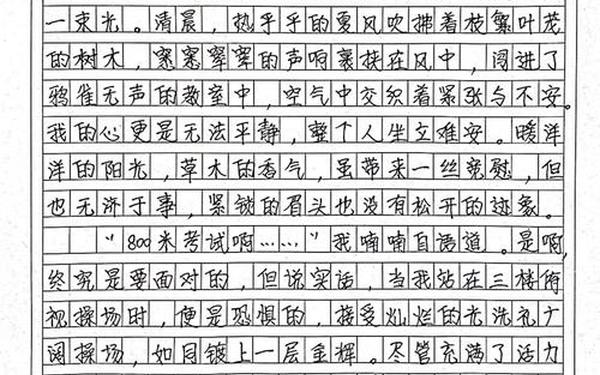 一束光。清晨，热乎乎的夏风吹拂着枝繁叶茂
的树木，窸窸窣窣的声响裹挟在风中，闯进了
鸦雀无声的教室中，空气中交织着紧张与不安。
我的心更是无法平静，整个人坐立难安。暖洋
洋的阳光，草木的香气，虽带来一丝宽慰，但
也无济于事，紧锁的眉头也没有松开的迹象。
“800米考试啊……”我喃喃自语道。是啊，
终究是要面对的，但说实话，当我站在三楼俯
视操场时，便是恐惧的，接受灿烂的光洗礼广
阔操场，如同镀上一层金辉。尽管充满了活力